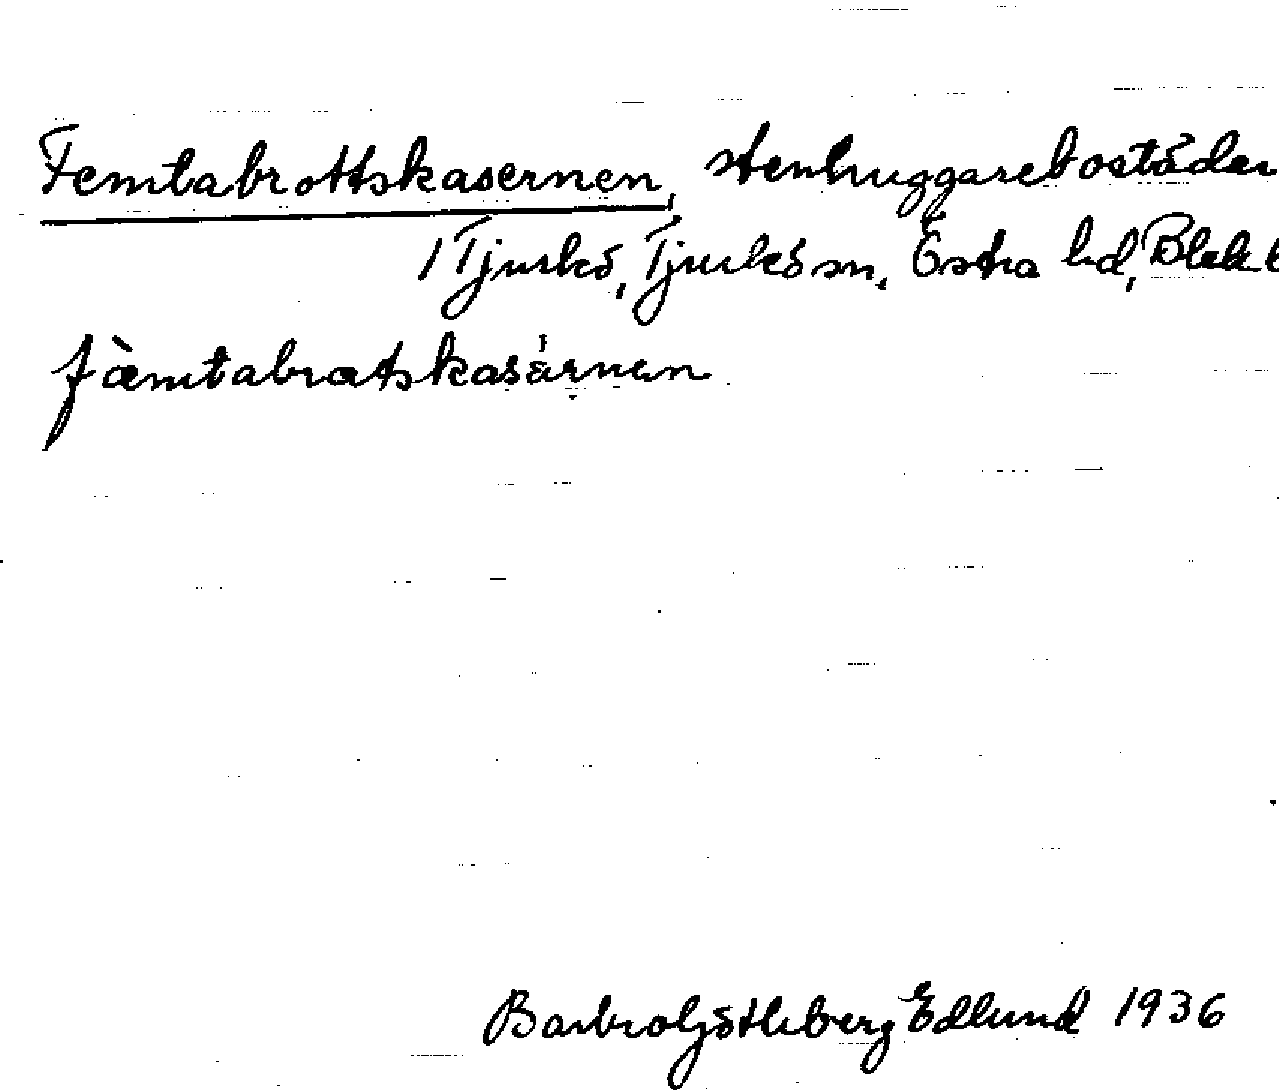 Femtabrottskasernen, stenhuggarebostäder
/ Tjurkö, Tjurkö sn, Östra hd, Blek
fàmtabratskasárnen
Barbro Götleberg Edlund 1936